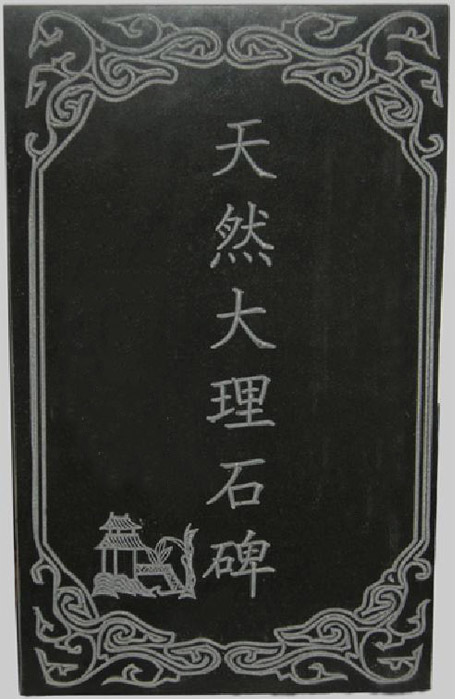 天然大理石碑